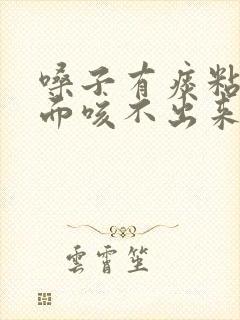 嗓子有痰粘
而咳不出来
雲霄笙